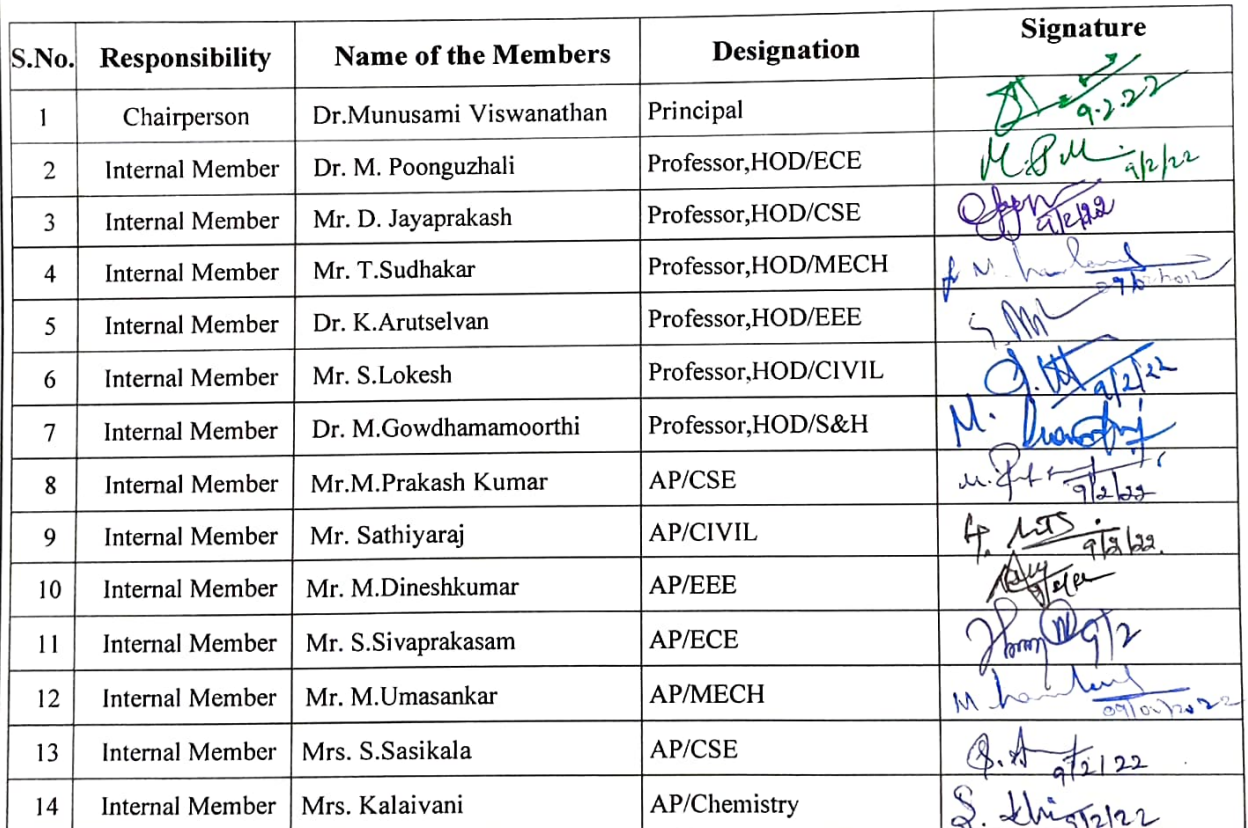 S.No. Responsibility Name of the Members Designation Signature
1 Chairperson Dr.Munusami Viswanathan Principal 9.2.22
2 Internal Member Dr. M. Poonguzhali Professor,HOD/ECE 9/2/22
3 Internal Member Mr. D. Jayaprakash Professor,HOD/CSE 9/2/22
4 Internal Member Mr. T.Sudhakar Professor,HOD/MECH
5 Internal Member Dr. K.Arutselvan Professor,HOD/EEE
6 Internal Member Mr. S.Lokesh Professor,HOD/CIVIL 9/2/22
7 Internal Member Dr. M.Gowdhamamoorthi Professor,HOD/S&H
8 Internal Member Mr.M.Prakash Kumar AP/CSE 9/2/22
9 Internal Member Mr. Sathiyaraj AP/CIVIL 9/2/22.
10 Internal Member Mr. M.Dineshkumar AP/EEE
11 Internal Member Mr. S.Sivaprakasam AP/ECE 9/2
12 Internal Member Mr. M.Umasankar AP/MECH 09/02/2022
13 Internal Member Mrs. S.Sasikala AP/CSE 9/2/22
14 Internal Member Mrs. Kalaivani AP/Chemistry 9/2/22